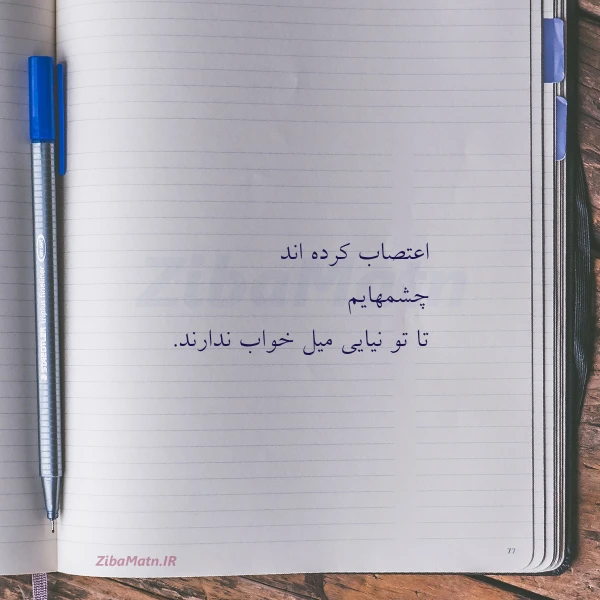 اعتصاب کرده اند
چشمهایم
تا تو نیایی میل خواب ندارند.
ZibaMatn
ZibaMatn.IR